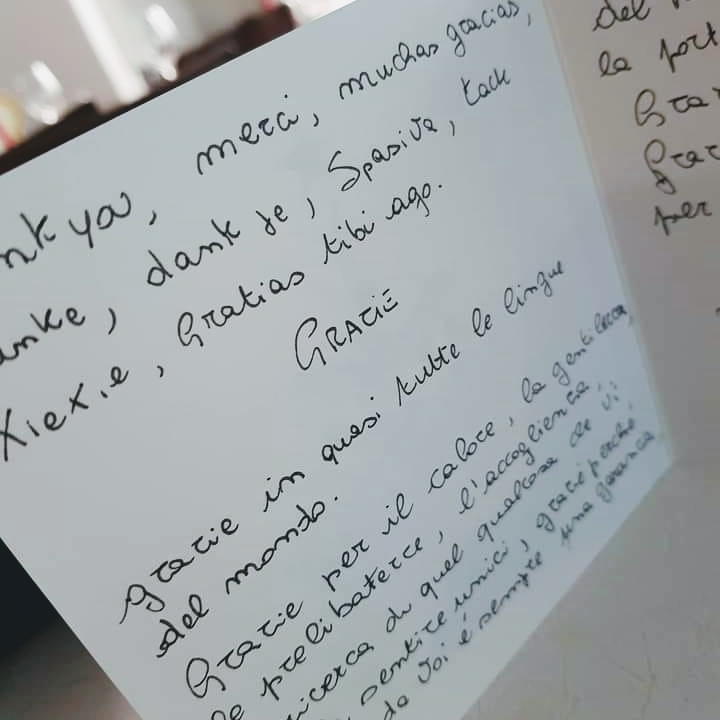 nk you, merci, muchas gracias,
anke, dank je, Spasiva, tack
Xiexie, Gratias tibi ago.
GRAZIE
grazie in quasi tutte le lingue
del mondo.
Grazie per il calore, la gentilezza,
le prelibatezze, l'accoglienza,
ricerca di quel qualcosa che vi
sentire unici, grazie perché
da voi è sempre una garanzia
del
la port
Graz
Graz
per